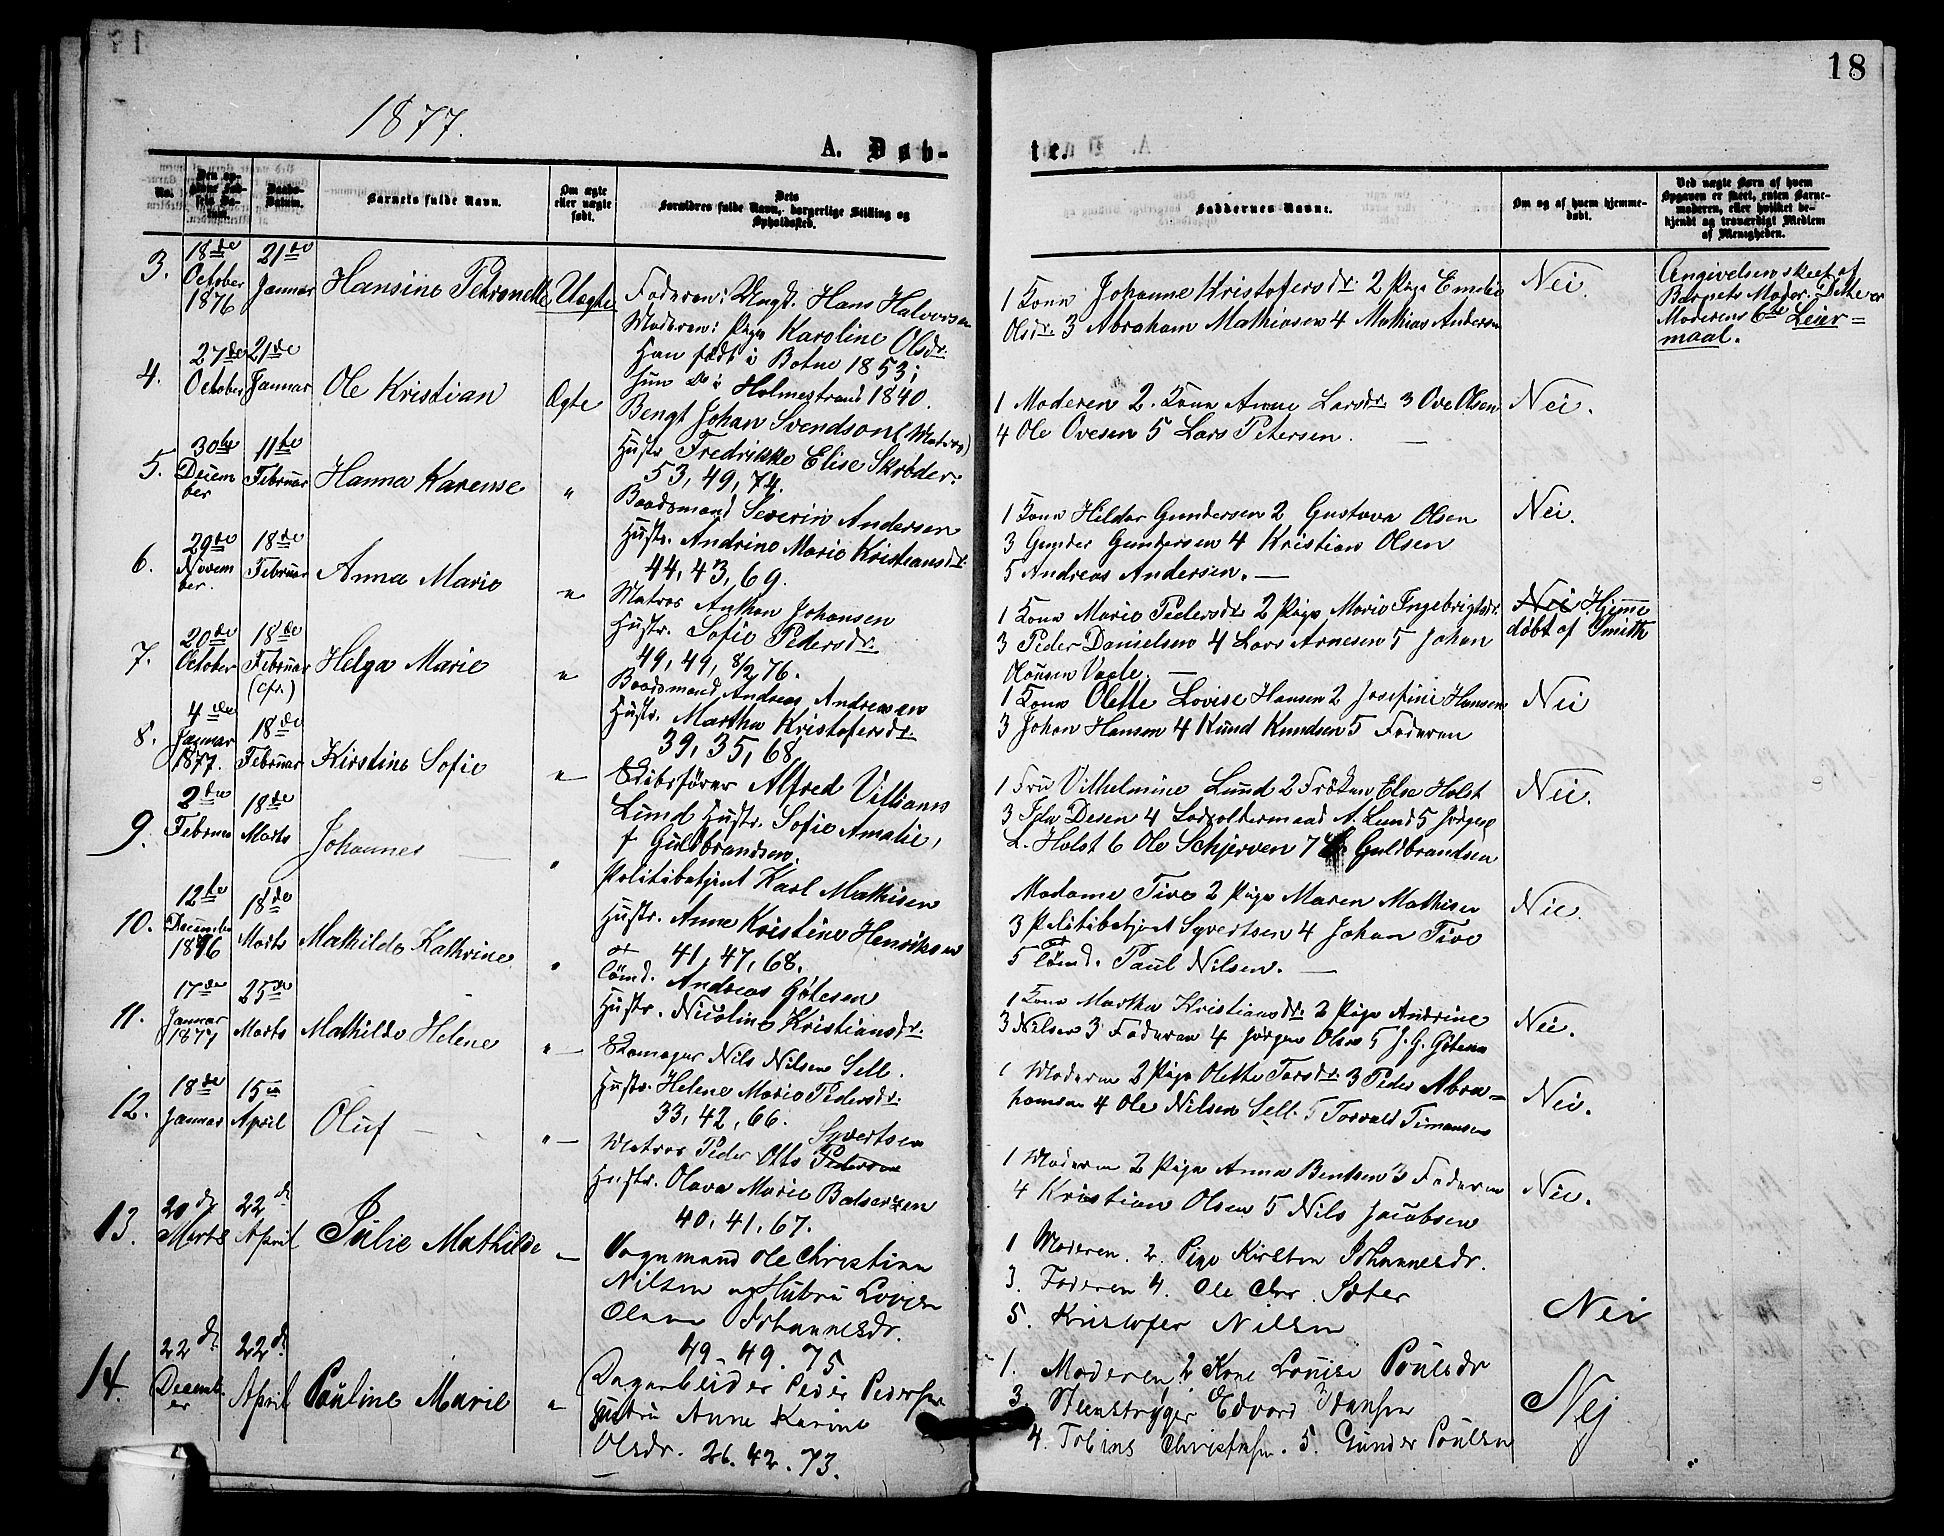 18
1877.
A. Døb-
te.
No.
Den opgivne Fødsels Datum.
Daabs-Datum.
Barnets fulde Navn.
Om ægte eller uægte født.
Dets Forældres fulde Navn, borgerlige Stilling og Opholdssted.
Faddernes Navne.
Om og af hvem hjemmedøbt.
Ved uægte Børn af hvem Opgaven er skeet, enten Barnemoderen, eller hvilket bekjendt og troværdigt Medlem af Menigheden.
3. 18de October 1876 21de Januar Hansine Petronelle Uægte
Faderen: Ungk. Hans Halvorsen
Moderen: Pige Karoline Olsdr.
Han født i Botne 1853;
hun do i Holmestrand 1840.
1 Kone Johanne Kristofersdr. 2 Pige Emelie
Olsdr. 3 Abraham Mathiasen 4 Mathias Andersen
Nei.
Angivelsen skeet af
Barnets Moder. Dette er
Moderens 6te Leier=
maal.
4. 27de October 21de Januar Ole Kristian Ægte
Bengt Johan Svendson (Matros)
Hustr. Fredrikke Elise Skrøder.
53, 49, 74.
1 Moderen 2. Kone Anne Larsdr. 3 Ove Olsen
4 Ole Ovesen 5 Lars Petersen.
Nei.
5. 30te December 11te Februar Hanna Karense "
Baadsmand Severin Andersen
Hustr. Andrine Marie Kristiansdr.
44, 43, 69.
1 Kone Hilda Gundersen 2 Gustava Olsen
3 Gunder Gundersen 4 Kristian Olsen
5 Andreas Andersen.
Nei.
6. 29de November. 18de Februar Anna Marie "
Matros Anthon Johansen
Hustr. Sofie Pedersdr.
49, 49, 8/2 76.
1 Kone Marie Pedersdr. 2 Pige Marie Ingebrigtsdr.
3 Peder Danielsen 4 Lars Arnesen 5 Johan
Olausen Vaale.
Nei Hjemme
døbt af Smith
7. 20de October 18de Februar (cfr.) Helga Marie "
Baadsmand Andreas Andreasen
Hustr. Martha Kristofersdr.
39, 35, 68.
1 Kone Olette Lovise Hansen 2 Josefine Hansen
3 Johan Hansen 4 Knud Knudsen 5 Faderen
Nei
8. 4de Januar 1877. 18de Februar Kirstine Sofie "
Skibsfører Alfred Villiams
Lund Hustr. Sofie Amalie,
f Guldbrandsen.
1 Fru Vilhelmine Lund 2 Frøken Else Holst
3 Desen 4 A. Lund 5 Jørgen
L. Holst 6 Ole Schjerven 7 Guldbrandsen
Nei.
9. 2den Februar 18de Marts Johannes
Politibetjent Karl Mathisen
Hustr. Anne Kristine Henriksen
41, 47, 68.
Madame Tive 2 Pige Maren Mathisen
3 Politibetjent Syvertsen 4 Johan Tive
5 Tømd. Paul Nilsen.
Nei.
10. 12te December 1876 18de Marts Mathilde Kathrine
Tømd. Andreas Gøtesen
Hustr. Nicoline Kristiansdr.
1 Kone Martha Kristiansdr. 2 Pige Andrine
3 Nilsen 3 Faderen 4 Jørgen Olsen 5 J. G. Gøtesen
Nei.
11. 17de Januar 1877 25de Marts Mathilde Helene "
Skomager Nils Nilsen Sell.
Hustr. Helene Marie Pedersdr.
33, 42, 66.
1 Moderen 2 Pige Olette Torsdr. 3 Peder Abra=
hamsen 4 Ole Nilsen Sell. 5 Torvald Timansen
Nei.
12. 18de Januar 15de April Oluf "
Matros Peder Otto Pedersen Syvertsen
Hustr. Olava Marie Balsersen
40, 41, 67.
1 Moderen 2 Pige Anna Bentsen 3 Faderen
4 Kristian Olsen 5 Nils Jacobsen
Nei.
13. 20de Marts 22de April Julie Mathilde
Vognmand Ole Christian
Nilsen og Hustru Lovise
Olava Johannesdr.
49. 49. 75
1 Moderen. 2. Pige Kirsten Johannesdr.
3. Faderen 4. Ole Chr. Sæter
5. Kristofer Nilsen
Nei
14. 22de December 22de April Pauline Marie "
Dagarbeider Peder Pedersen
Hustru Anne Karine
Olsdr. 26. 42. 73.
1. Moderen 2 Kone Louise Poulsdr
3. Steenstryger Edvard Hansen
4. Tobias Christensen. 5. Gunder Poulsen
Nej